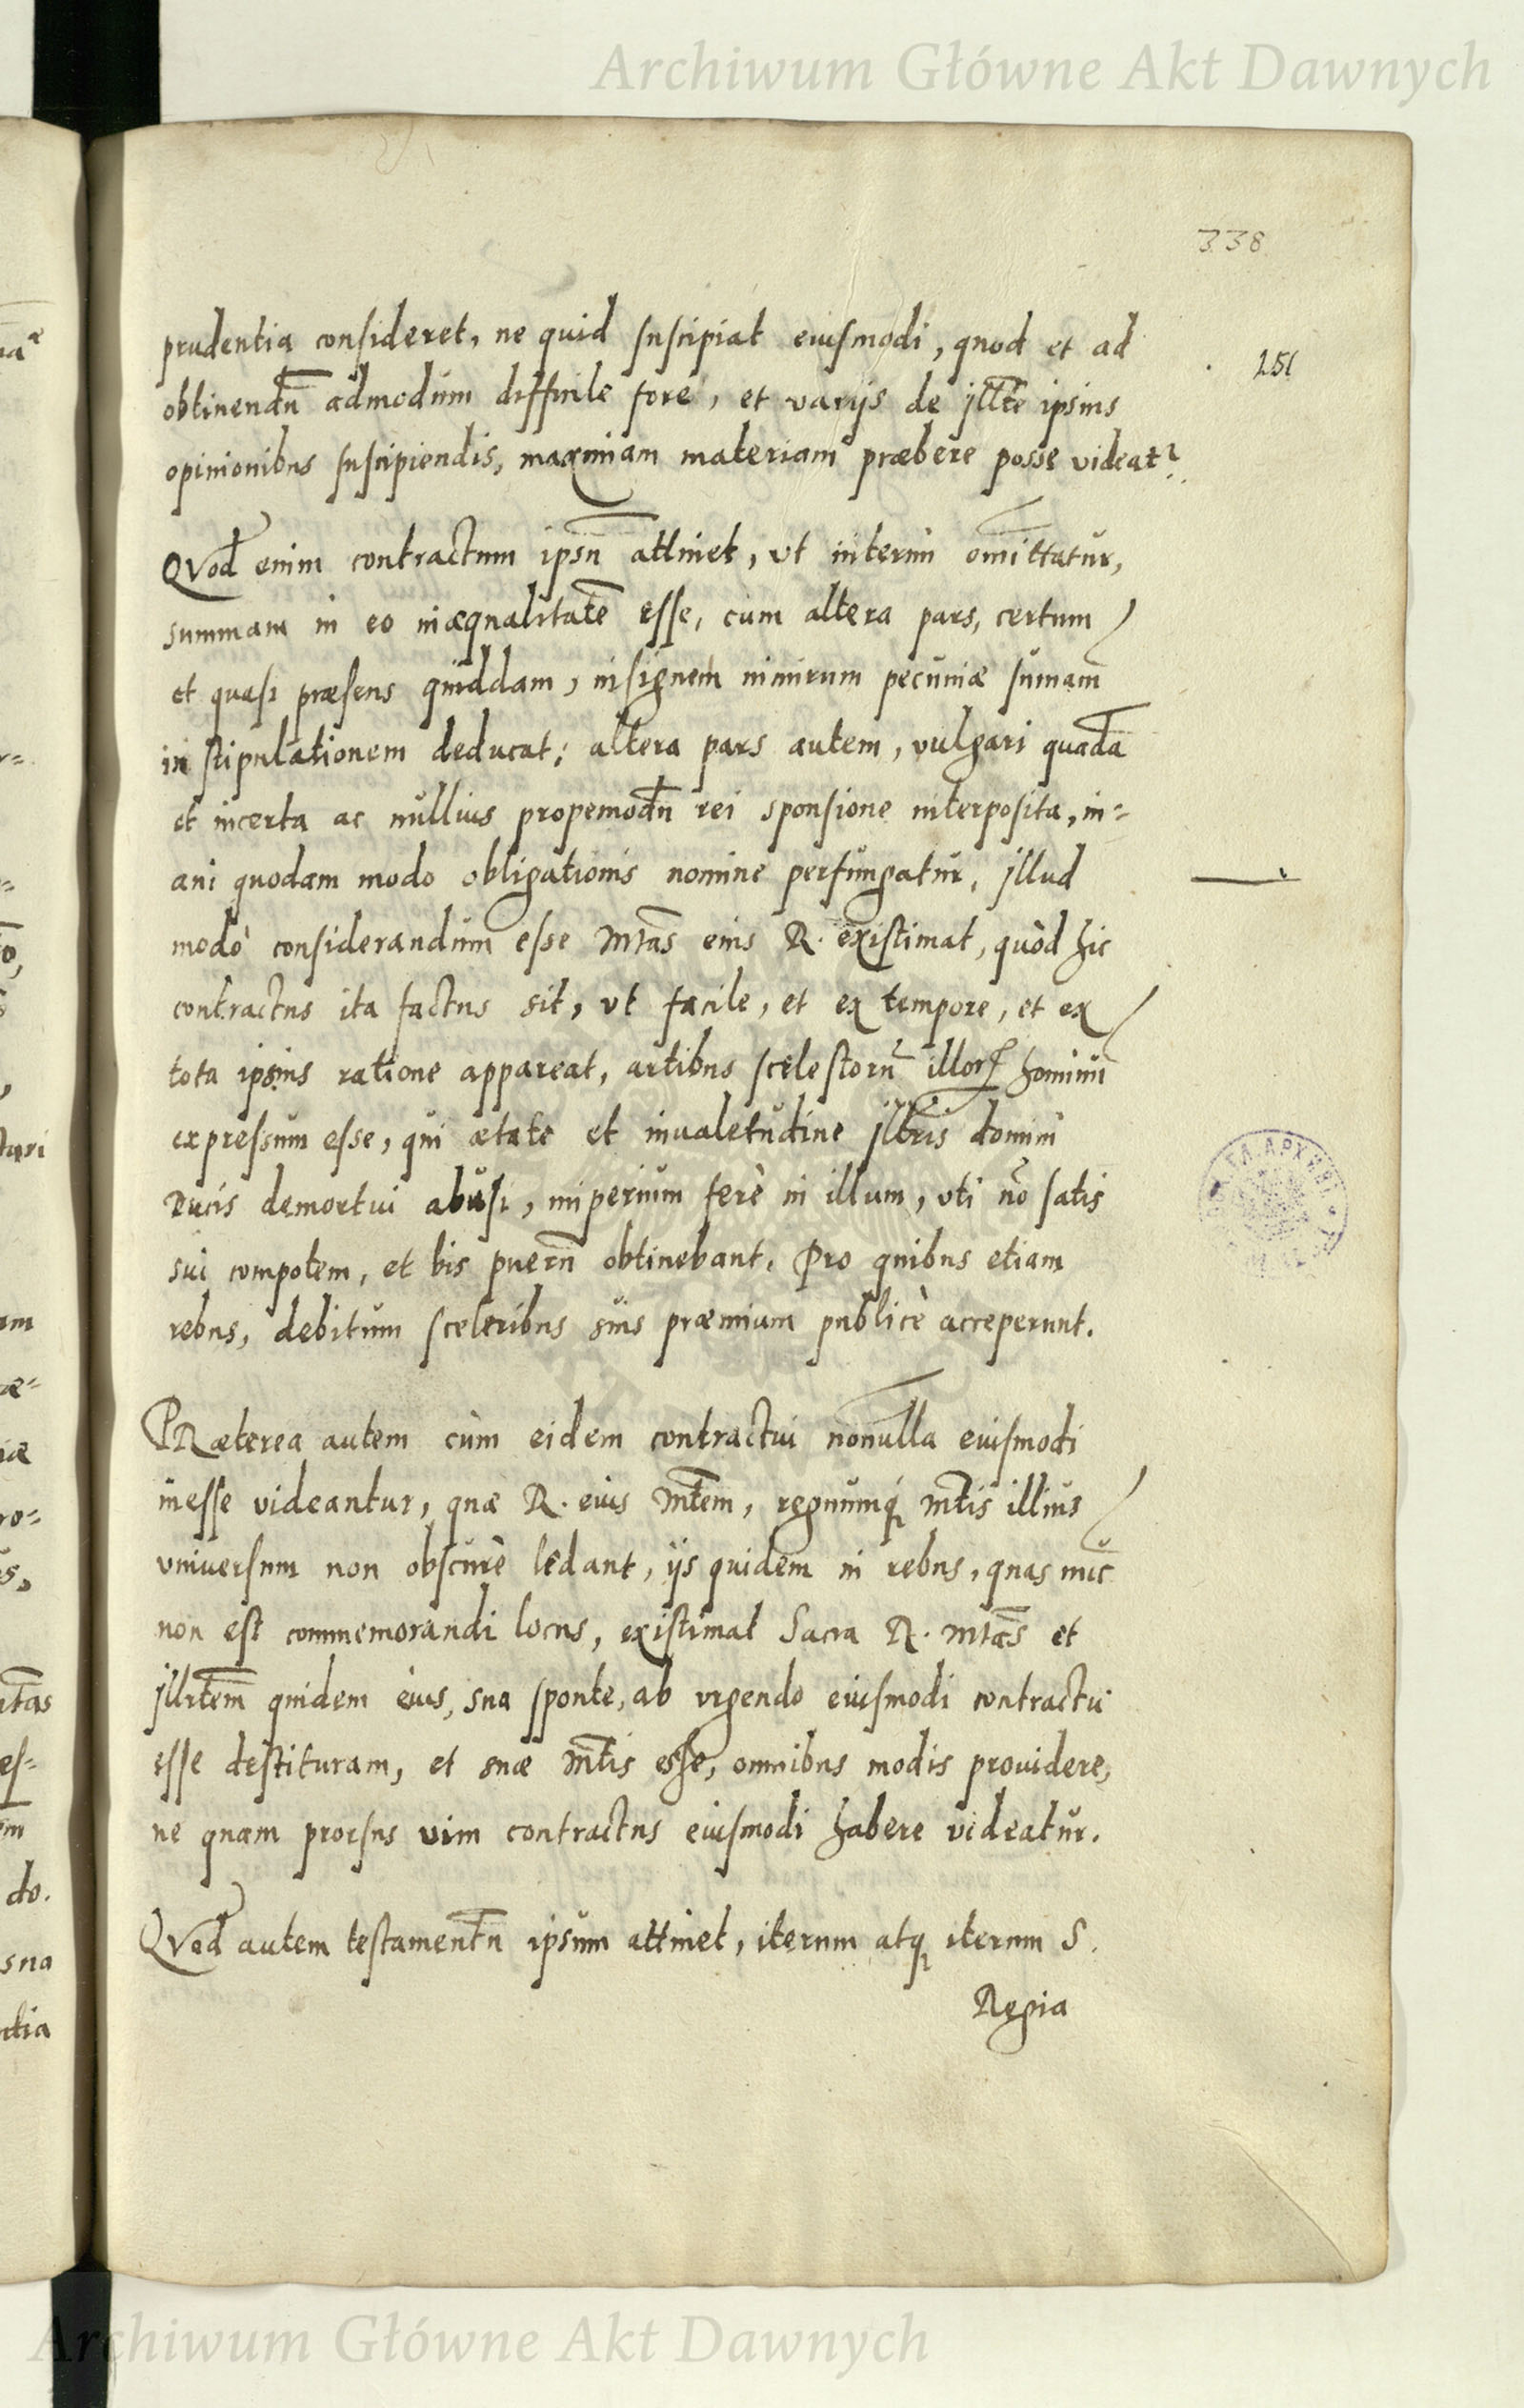 Archiwum Główne Akt Dawnych
338
251
prudentia consideret, ne quid suscipiat eiusmodi, quod et ad
obtinendū admodùm difficile fore, et varijs de jllte ipsius
opinionibus suscipiendis, maximam materiam præbere posse videatr.
QVod enim contractum ipsū attinet, vt interim omittatur,
summam in eo inæqualitatē esse, cum altera pars, certum
et quasi præsens quiddam, insignem nimirum pecuniæ sumam̄
in stipulationem deducat; altera pars autem, vulgari quadā
et incerta ac nullius propemodū rei sponsione interposita, in=
ani quodam modo obligationis nomine perfungatur, jllud
modò considerandum esse Mtas eius R. existimat, quòd hic
contractus ita factus sit, vt facile, et ex tempore, et ex
tota ipsius ratione appareat, artibus scelestorū illorꝝ hominū
expressum esse, qui ætate et inualetudine jllbris domini
Ducis demortui abusi, imperium ferè in illum, vti nō satis
sui compotem, et bis puerū obtinebant. Pro quibus etiam
rebus, debitum sceleribus suis præmium publicè acceperunt.
PRæterea autem cùm eidem contractui nonulla eiusmodi
inesse videantur, quæ R. eius Mtem, regnumq́ Mtis illius
vniuersum non obscurè lędant, ijs quidem in rebus, quas nūc
non est commemorandi locus, existimat Sacra R. Mtas et
jllrtem quidem eius, sua sponte, ab vrgendo eiusmodi contractu
esse destituram, et suæ Mtis esse, omnibus modis prouidere,
ne quam prorsus vim contractus eiusmodi habere videatur.
QVod autem testamentū ipsum attinet, iterum atq iterum S.
Regia
Archiwum Główne Akt Dawnych